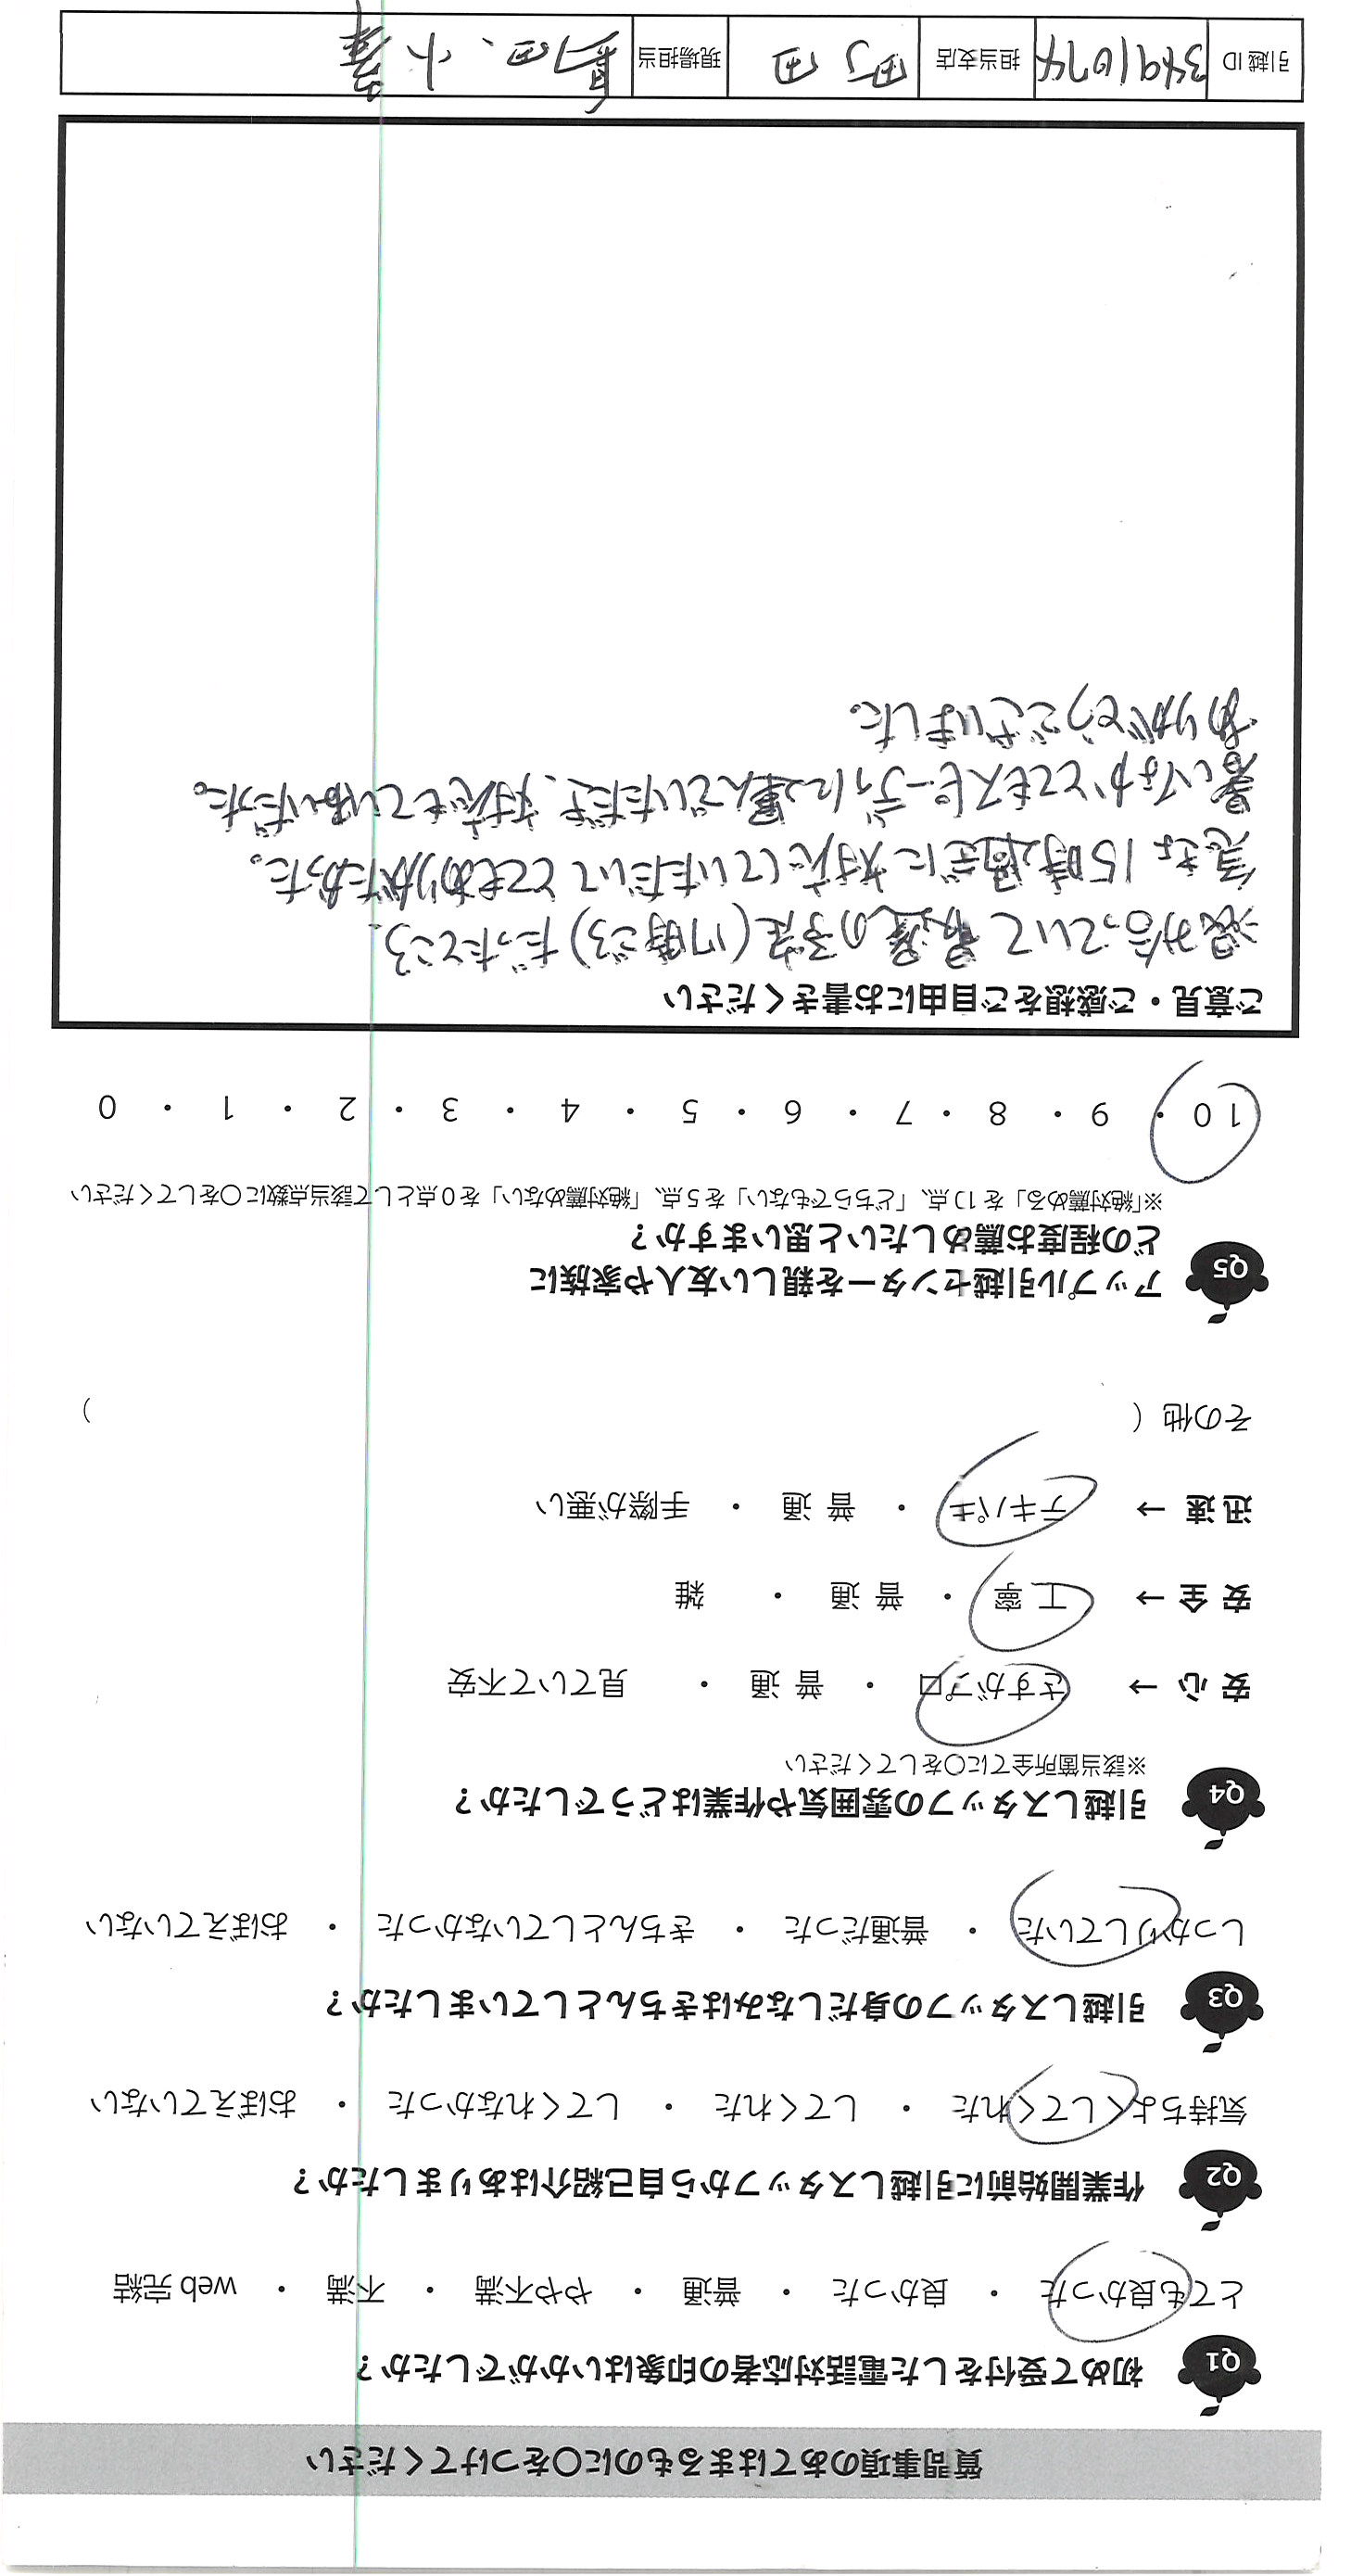 質問事項のあてはまるものに〇をつけてください
Q1 初めて受付をした電話対応者の印象はいかがでしたか？
とても良かった ・ 良かった ・ 普通 ・ やや不満 ・ 不満 ・ web 完結
Q2 作業開始前に引越しスタッフから自己紹介はありましたか？
気持ちよくしてくれた ・ してくれた ・ してくれなかった ・ おぼえていない
Q3 引越しスタッフの身だしなみはきちんとしていましたか？
しっかりしていた ・ 普通だった ・ きちんとしていなかった ・ おぼえていない
Q4 引越しスタッフの雰囲気や作業はどうでしたか？
※該当箇所全てに〇をしてください
安 心 → さすがプロ ・ 普 通 ・ 見ていて不安
安 全 → 丁 寧 ・ 普 通 ・ 雑
迅 速 → テキパキ ・ 普 通 ・ 手際が悪い
その他 ( )
Q5 アップル引越センターを親しい友人や家族に
どの程度お薦めしたいと思いますか？
※「絶対薦める」を10点、「どちらでもない」を5点、「絶対薦めない」を0点として該当点数に〇をしてください
10 ・ 9 ・ 8 ・ 7 ・ 6 ・ 5 ・ 4 ・ 3 ・ 2 ・ 1 ・ 0
ご意見・ご感想をご自由にお書きください
混み合っていて最遅の予定(17時ごろ)だったところ、
急きょ15時過ぎに対応していただいてとてもありがたかった。
暑いなかとてもスピーディに運んでいただき、対応していただけた。
ありがとうございました。
引越ID 3491074 担当支店 町田 現場担当 眞田、小澤